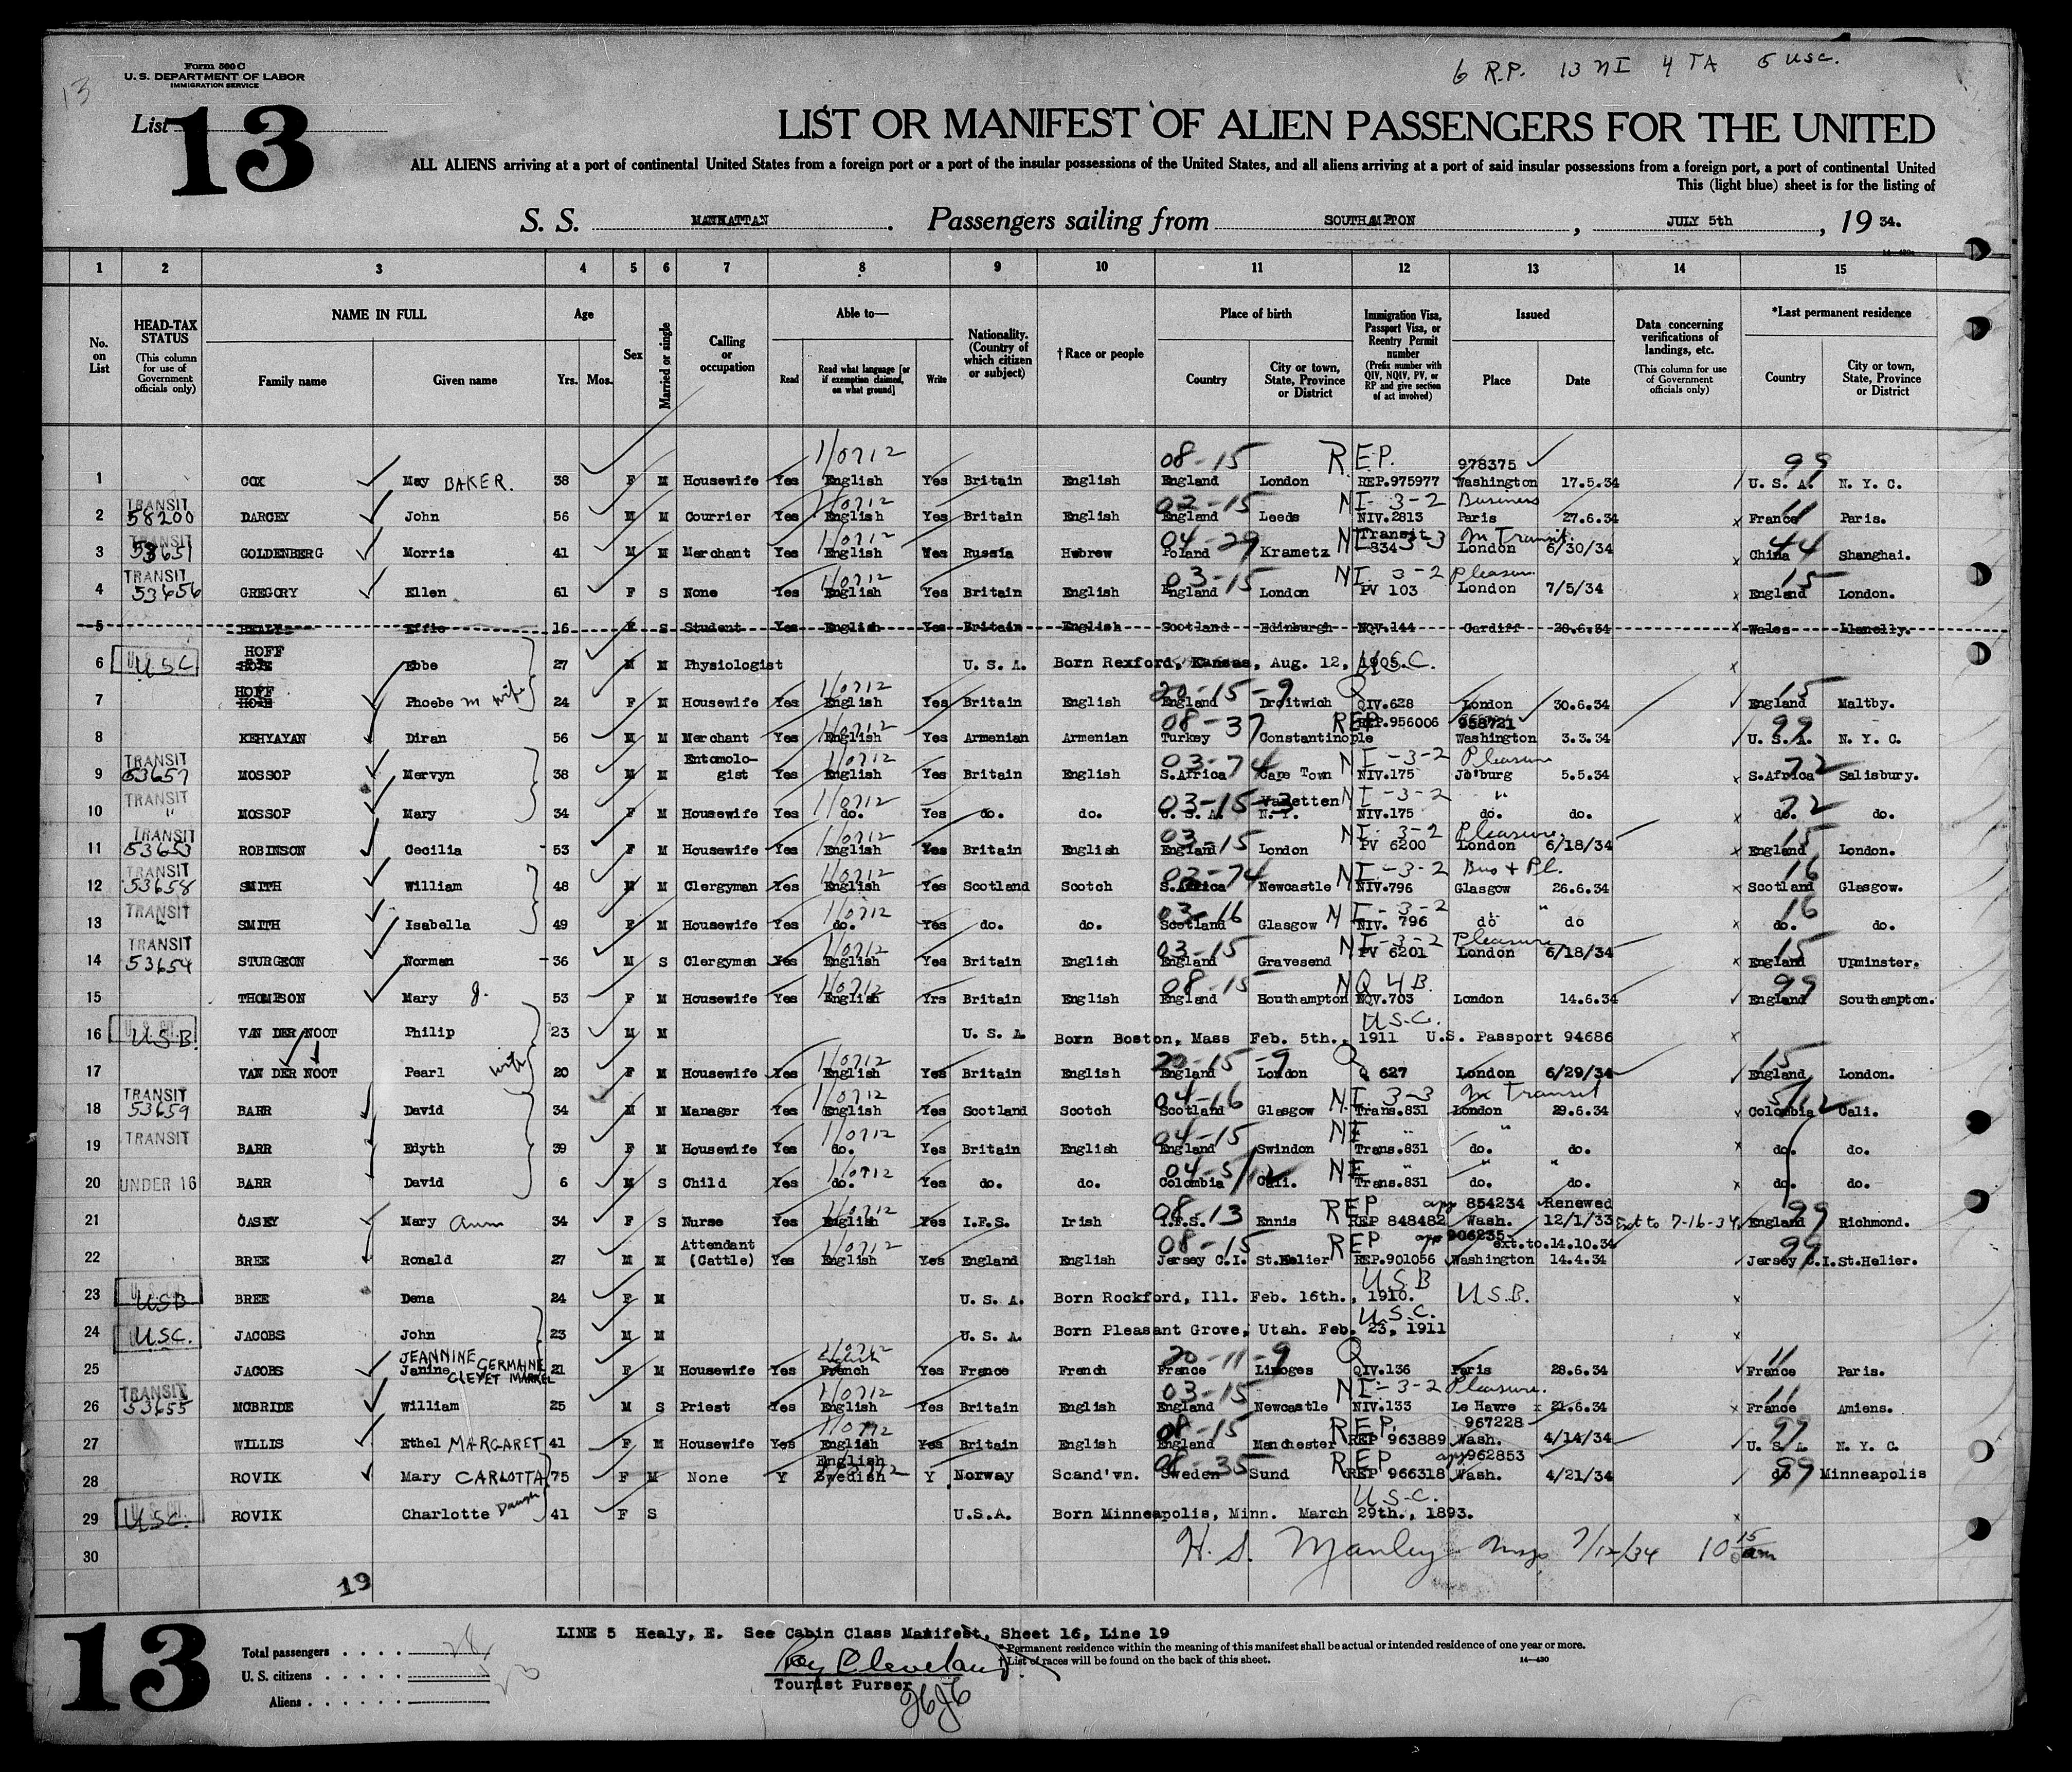 Form 500 C
U. S. DEPARTMENT OF LABOR
IMMIGRATION SERVICE
13
6 R.P. 13 NI 4 TA 5 USC.
List 13
LIST OR MANIFEST OF ALIEN PASSENGERS FOR THE UNITED
ALL ALIENS arriving at a port of continental United States from a foreign port or a port of the insular possessions of the United States, and all aliens arriving at a port of said insular possessions from a foreign port, a port of continental United
This (light blue) sheet is for the listing of
S. S. MANHATTAN. Passengers sailing from SOUTHAMPTON, JULY 5th, 19 34.
1 2 3 4 5 6 7 8 9 10 11 12 13 14 15
No. on List
HEAD-TAX STATUS (This column for use of Government officials only)
NAME IN FULL Family name Given name
Age Yrs. Mos.
Sex
Married or single
Calling or occupation
Able to— Read Read what language [or if exemption claimed, on what ground] Write
Nationality. (Country of which citizen or subject)
†Race or people
Place of birth Country City or town, State, Province or District
Immigration Visa, Passport Visa, or Reentry Permit number (Prefix number with QIV, NQIV, PV, or RP and give section of act involved)
Issued Place Date
Data concerning verifications of landings, etc. (This column for use of Government officials only)
*Last permanent residence Country City or town, State, Province or District
1 COX May BAKER. 38 F M Housewife Yes 1/0712 English Yes Britain English 08-15 England London R.E.P. REP.975977 978375 Washington 17.5.34 99 U. S. A. N. Y. C.
2 TRANSIT 58200 DARCEY John 56 M M Courrier Yes 1/0712 English Yes Britain English 03-15 England Leeds NI-3-2 NIV.2813 Business Paris 27.6.34 x 11 France Paris.
3 TRANSIT 53651 GOLDENBERG Morris 41 M M Merchant Yes 1/0712 English Yes Russia Hebrew 04-29 Poland Krametz NI 3-3 Transit 834 In Transit. London 6/30/34 x 44 China Shanghai.
4 TRANSIT 53656 GREGORY Ellen 61 F S None Yes 1/0712 English Yes Britain English 03-15 England London NI 3-2 PV 103 Pleasure London 7/5/34 x 15 England London.
5 HEALY Effie 16 F S Student Yes English Yes Britain English Scotland Edinburgh NQV.144 Cardiff 28.6.34 Wales Llanelly.
6 USC HOFF Ebbe 27 M M Physiologist U. S. A. Born Rexford, Kansas, Aug. 12, 1905. U.S.C. x
7 HOFF Phoebe M wife 24 F M Housewife Yes 1/0712 English Yes Britain English 20-15-9 England Droitwich Q QIV.628 London 30.6.34 15 England Maltby.
8 KEHYAYAN Diran 56 M M Merchant Yes 1/0712 English Yes Armenian Armenian 08-37 Turkey Constantinople REP REP.956006 958721 Washington 3.3.34 99 U. S. A. N. Y. C.
9 TRANSIT 53657 MOSSOP Mervyn 38 M M Entomologist Yes 1/0712 English Yes Britain English 03-74 S.Africa Cape Town NI-3-2 NIV.175 Pleasure Jo'burg 5.5.34 x 72 S.Africa Salisbury.
10 TRANSIT " MOSSOP Mary 34 F M Housewife Yes 1/0712 do. Yes do. do. 03-15-3 U. S. A. Vanetten N. Y. NI-3-2 NIV.175 " do. do. x 72 do. do.
11 TRANSIT 53653 ROBINSON Cecilia 53 F M Housewife Yes 1/0712 English Yes Britain English 03-15 England London NI-3-2 PV 6200 Pleasure. London 6/18/34 x 15 England London.
12 TRANSIT 53658 SMITH William 48 M M Clergyman Yes 1/0712 English Yes Scotland Scotch 03-74 S.Africa Newcastle NI-3-2 NIV.796 Bus + Pl. Glasgow 26.6.34 x 16 Scotland Glasgow.
13 TRANSIT " SMITH Isabella 49 F M Housewife Yes 1/0712 do. Yes do. do. 03-16 Scotland Glasgow NI-3-2 NIV. 796 " do do x 16 do. do.
14 TRANSIT 53654 STURGEON Norman 36 M S Clergyman Yes 1/0712 English Yes Britain English 03-15 England Gravesend NI-3-2 PV 6201 Pleasure London 6/18/34 x 15 England Upminster.
15 THOMPSON Mary J. 53 F M Housewife Yes 1/0712 English Yrs Britain English 08-15 England Houthampton NQ 4B. NQV.703 London 14.6.34 99 England Southampton.
16 U.S.B. VAN DER NOOT Philip 23 M M U. S. A Born Boston, Mass Feb. 5th., 1911 U.S.C. U.S. Passport 94686 x
17 VAN DER NOOT Pearl wife 20 F M Housewife Yes 1/0712 English Yes Britain English 20-15-9 England London Q Q 627 London 6/29/34 15 England London.
18 TRANSIT 53659 BARR David 34 M M Manager Yes 1/0712 English Yes Scotland Scotch 04-16 Scotland Glasgow N.I. 3-3 Trans.831 In Transit London 29.6.34 5/12 Colombia Cali.
19 TRANSIT BARR Edyth 39 F M Housewife Yes 1/0712 do. Yes Britain English 04-15 England Swindon NI " Trans.831 " do. do. x do. do.
20 UNDER 16 BARR David 6 M S Child Yes 1/0712 do. Yes do. do. 04-5/12 Colombia Cali. NI " Trans.831 " do. " do. x do. do.
21 CASEY Mary Ann 34 F S Nurse Yes 1/0712 English Yes I.F.S. Irish 08-13 I.F.S. Ennis REP REP 848482 app 854234 Wash. Renewed 12/1/33 Ext to 7-16-34. 99 England Richmond.
22 BREE Ronald 27 M M Attendant (Cattle) Yes 1/0712 English Yes England English 08-15 Jersey C.I. St.Helier REP REP.901056 app 906235 ext.to.14.10.34 Washington 14.4.34 99 Jersey C.I. St.Helier.
23 USB BREE Dena 24 F M U. S. A. Born Rockford, Ill. Feb. 16th., 1910. U.S.B U.S.B. x
24 USC. JACOBS John 23 M M U. S. A. Born Pleasant Grove, Utah. Feb. 23, 1911 U.S.C. x
25 JACOBS JEANNINE GERMAINE Janine 21 F M Housewife Yes 1/0712 English French Yes France French 20-11-9 France Limoges Q QIV.136 Paris 28.6.34 11 France Paris.
26 TRANSIT 53655 MCBRIDE William 25 M S Priest Yes 1/0712 English Yes Britain English 03-15 England Newcastle NI-3-2 NIV.133 Pleasure. Le Havre x 21.6.34 x 11 France Amiens.
27 WILLIS Ethel MARGARET 41 F M Housewife Yes 1/0712 English Yes Britain English 08-15 England Manchester REP. REP 963889 967228 Wash. 4/14/34 99 U. S. A. N. Y. C.
28 ROVIK Mary CARLOTTA 75 F M None Y English Swedish Y Norway Scand'vn. 08-35 Sweden Sund REP REP 966318 app 962853 Wash. 4/21/34 99 do Minneapolis
29 USC. ROVIK Charlotte Daugh 41 F S U.S.A. Born Minneapolis, Minn. March 29th., 1893. U.S.C. x
30 H. S. Manley 7/12/34 10 15 am
19
13
LINE 5 Healy, E. See Cabin Class Manifest, Sheet 16, Line 19
Total passengers . . . . 28
U. S. citizens . . . . .
Aliens . . . . . .
Roy Cleveland
Tourist Purser
* Permanent residence within the meaning of this manifest shall be actual or intended residence of one year or more.
† List of races will be found on the back of this sheet.
14—430